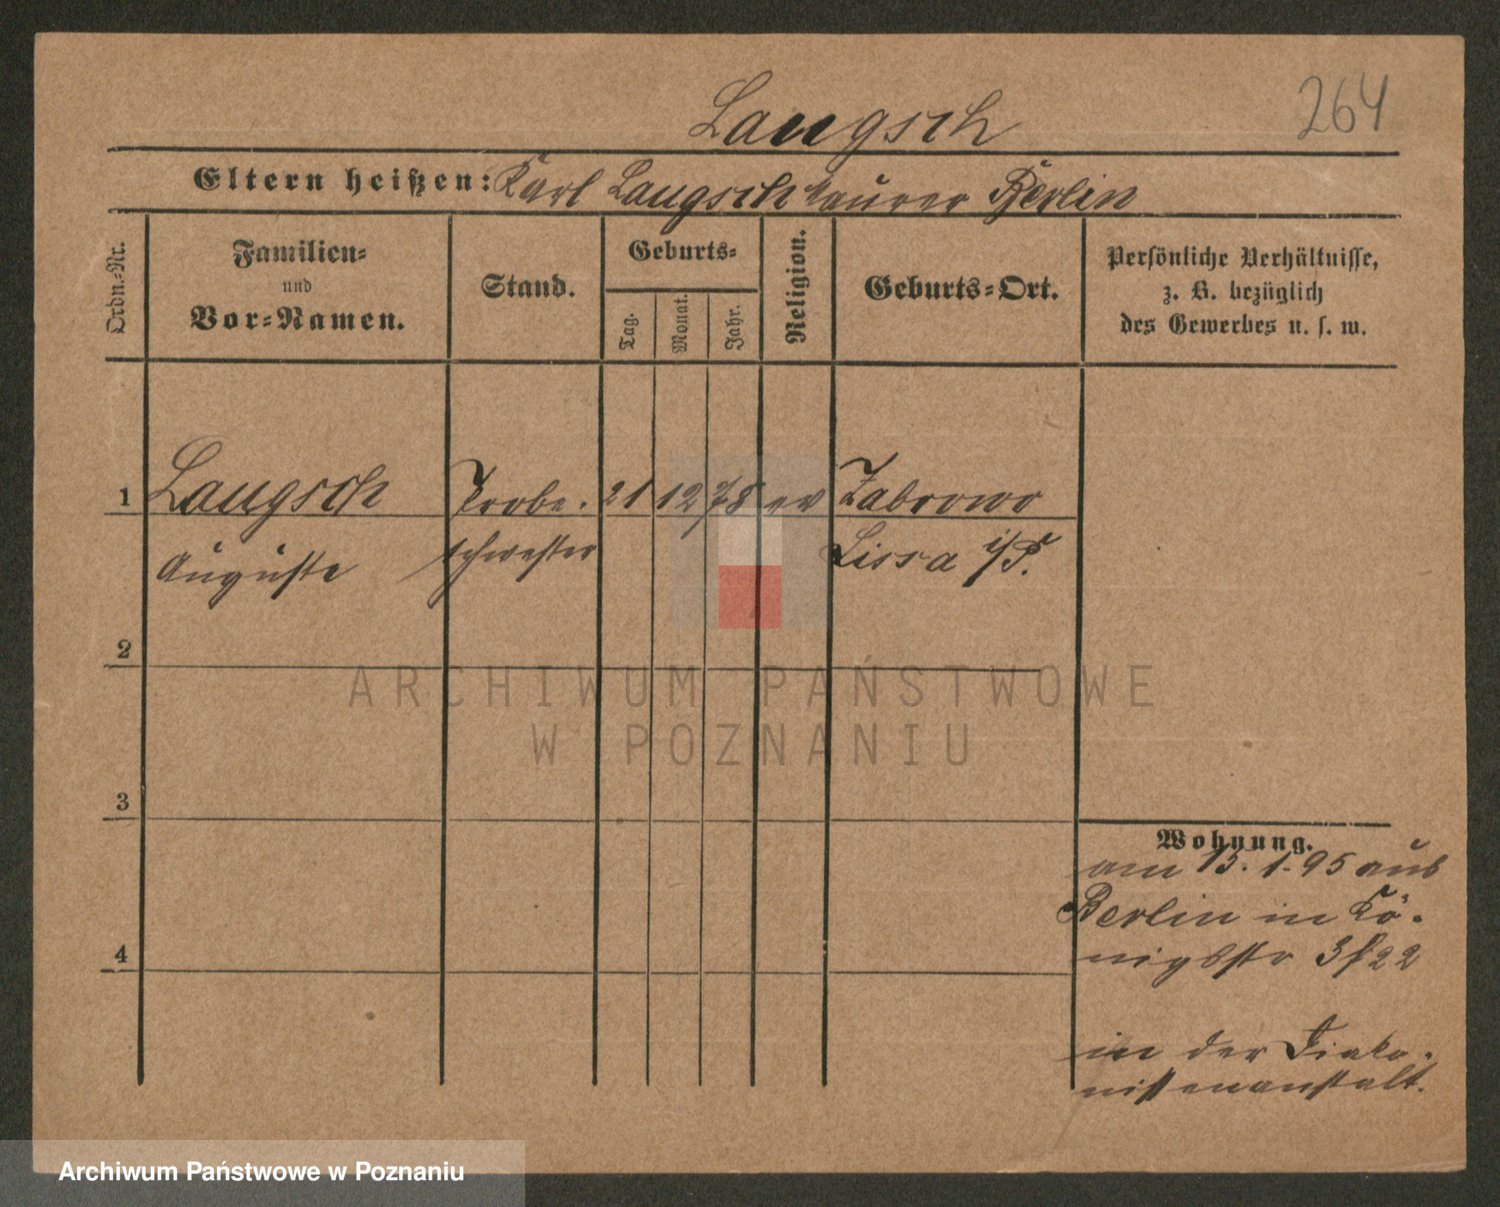 264
Laugsch
Eltern heißen: Karl Laugsch Maurer Berlin
Ordn.=Nr.
Familien=
und
Vor=Namen.
Stand.
Geburts=
Tag.
Monat.
Jahr.
Religion.
Geburts=Ort.
Persönliche Verhältnisse,
z. B. bezüglich
des Gewerbes u. s. w.
1 Laugsch Probe. 21 12 78 ev Zabrowo
Auguste schwester Lissa i/P.
2
3
4
Wohnung.
am 15.1.95 aus
Berlin in Kö-
nigsstr 22
in der Diako-
nissenanstalt.
ARCHIWUM PAŃSTWOWE
W POZNANIU
Archiwum Państwowe w Poznaniu